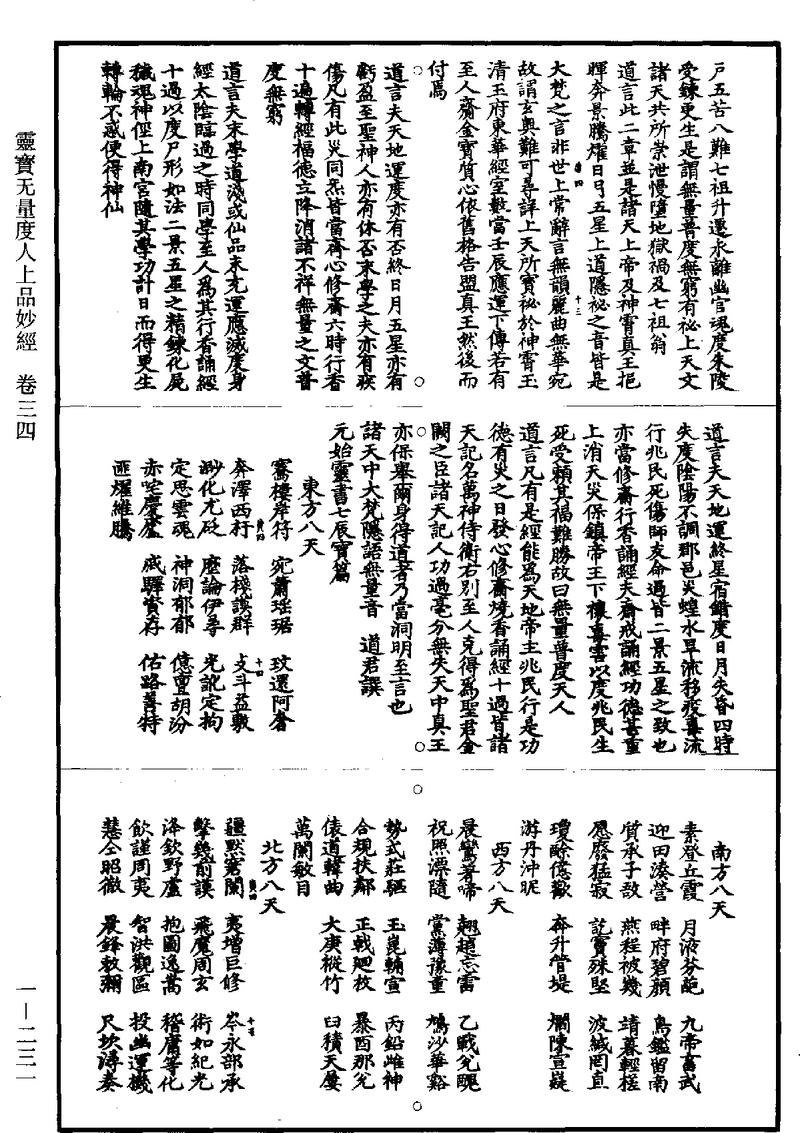 靈寳无量度人上品妙經　卷三四
一—二三一
戶五苦八難七祖升遷永離幽官魂度朱陵
受鍊更生是謂無量普度無窮有祕上天文
諸天共所崇泄慢墮地獄禍及七祖翁
道言此二章並是諸天上帝及神霄真王把
暉奔景騰耀日月五星上道隱祕之音皆是
大梵之言非世上常辭言無韻麗曲無華宛
故謂玄奥難可尋詳上天所寶祕於神霄玉
清王府東華經室數當壬辰應運下傳若有
至人齎金寶質心依舊格告盟真王然後而
付焉
道言夫天地運度亦有否終日月五星亦有
虧盈至聖神人亦有休否末學之夫亦有疾
傷凡有此災同炁皆當齋心修齋六時行香
十過轉經福德立降消諸不祥無量之文普
度無窮
道言夫末學道淺或仙品未充運應滅度身
經太陰臨過之時同學至人爲其行香誦經
十過以度尸形如法二景五星之精鍊化屍
穢魂神徑上南宮隨其學功計日而得更生
轉輪不惑便得神仙
道言夫天地運終星宿錯度日月失昏四時
失度陰陽不調郡邑災蝗水旱流移疫毒流
行兆民死傷師友命過皆二景五星之致也
亦當修齋行香誦經夫齋戒誦經功德甚重
上消天災保鎮帝王下禳毒害以度兆民生
死受賴其福難勝故曰無量普度天人
道言凡有是經能爲天地帝主兆民行是功
德有災之日發心修齋燒香誦經十過皆諸
天記名萬神侍衛右別至人克得爲聖君金
闕之臣諸天記人功過毫分無失天中真王
亦保舉爾身得道者乃當洞明至言也
諸天中大梵隱語無量音　道君譔
元始靈書七辰寶篇
東方八天
騫棲岸符　宛蕭瑶琚　玟還阿奢
奔澤西籽　落棧謨群　攴斗益敷
渺化尤砭　塵論伊尋　光訛定拘
定思雲魂　神洞郁郁　億亶胡汾
赤喹慶廬　咸驛賫存　佑路菩特
匪耀維騰
南方八天
素登丘霞　月液芬葩　九帝畜武
迎田湊營　畔府碧顔　鳥鑑留南
質承子敔　燕程被幾　靖暮輕槎
愿廢猛寂　訖實殊堅　波緘罔直
瓊鄶億歡　奔升管堤　爛陳宣嶷
游丹沖昵
西方八天
晨鸞著啼　翹趙忘雷　乙戰兊醜
祝照漂隨　黨薄豫重　鳩沙華谿
勢式莊驅　玉崑輔宣　丙鉛雌神
合規扶鄰　正戟廻枚　暴酉那兊
俵道韓曲　大庚樅竹　臼積天屢
萬闌敏目
北方八天
疆默寠闌　夷増巨修　岑永部承
擊幾前謨　飛魔周玄　術如紀光
洚欽野盧　抱圖逸蒿　稽庸等化
飲謹周夷　智洪觀區　投幽運機
慧仝昭微　晨鋒敕彌　尺坎潯奏